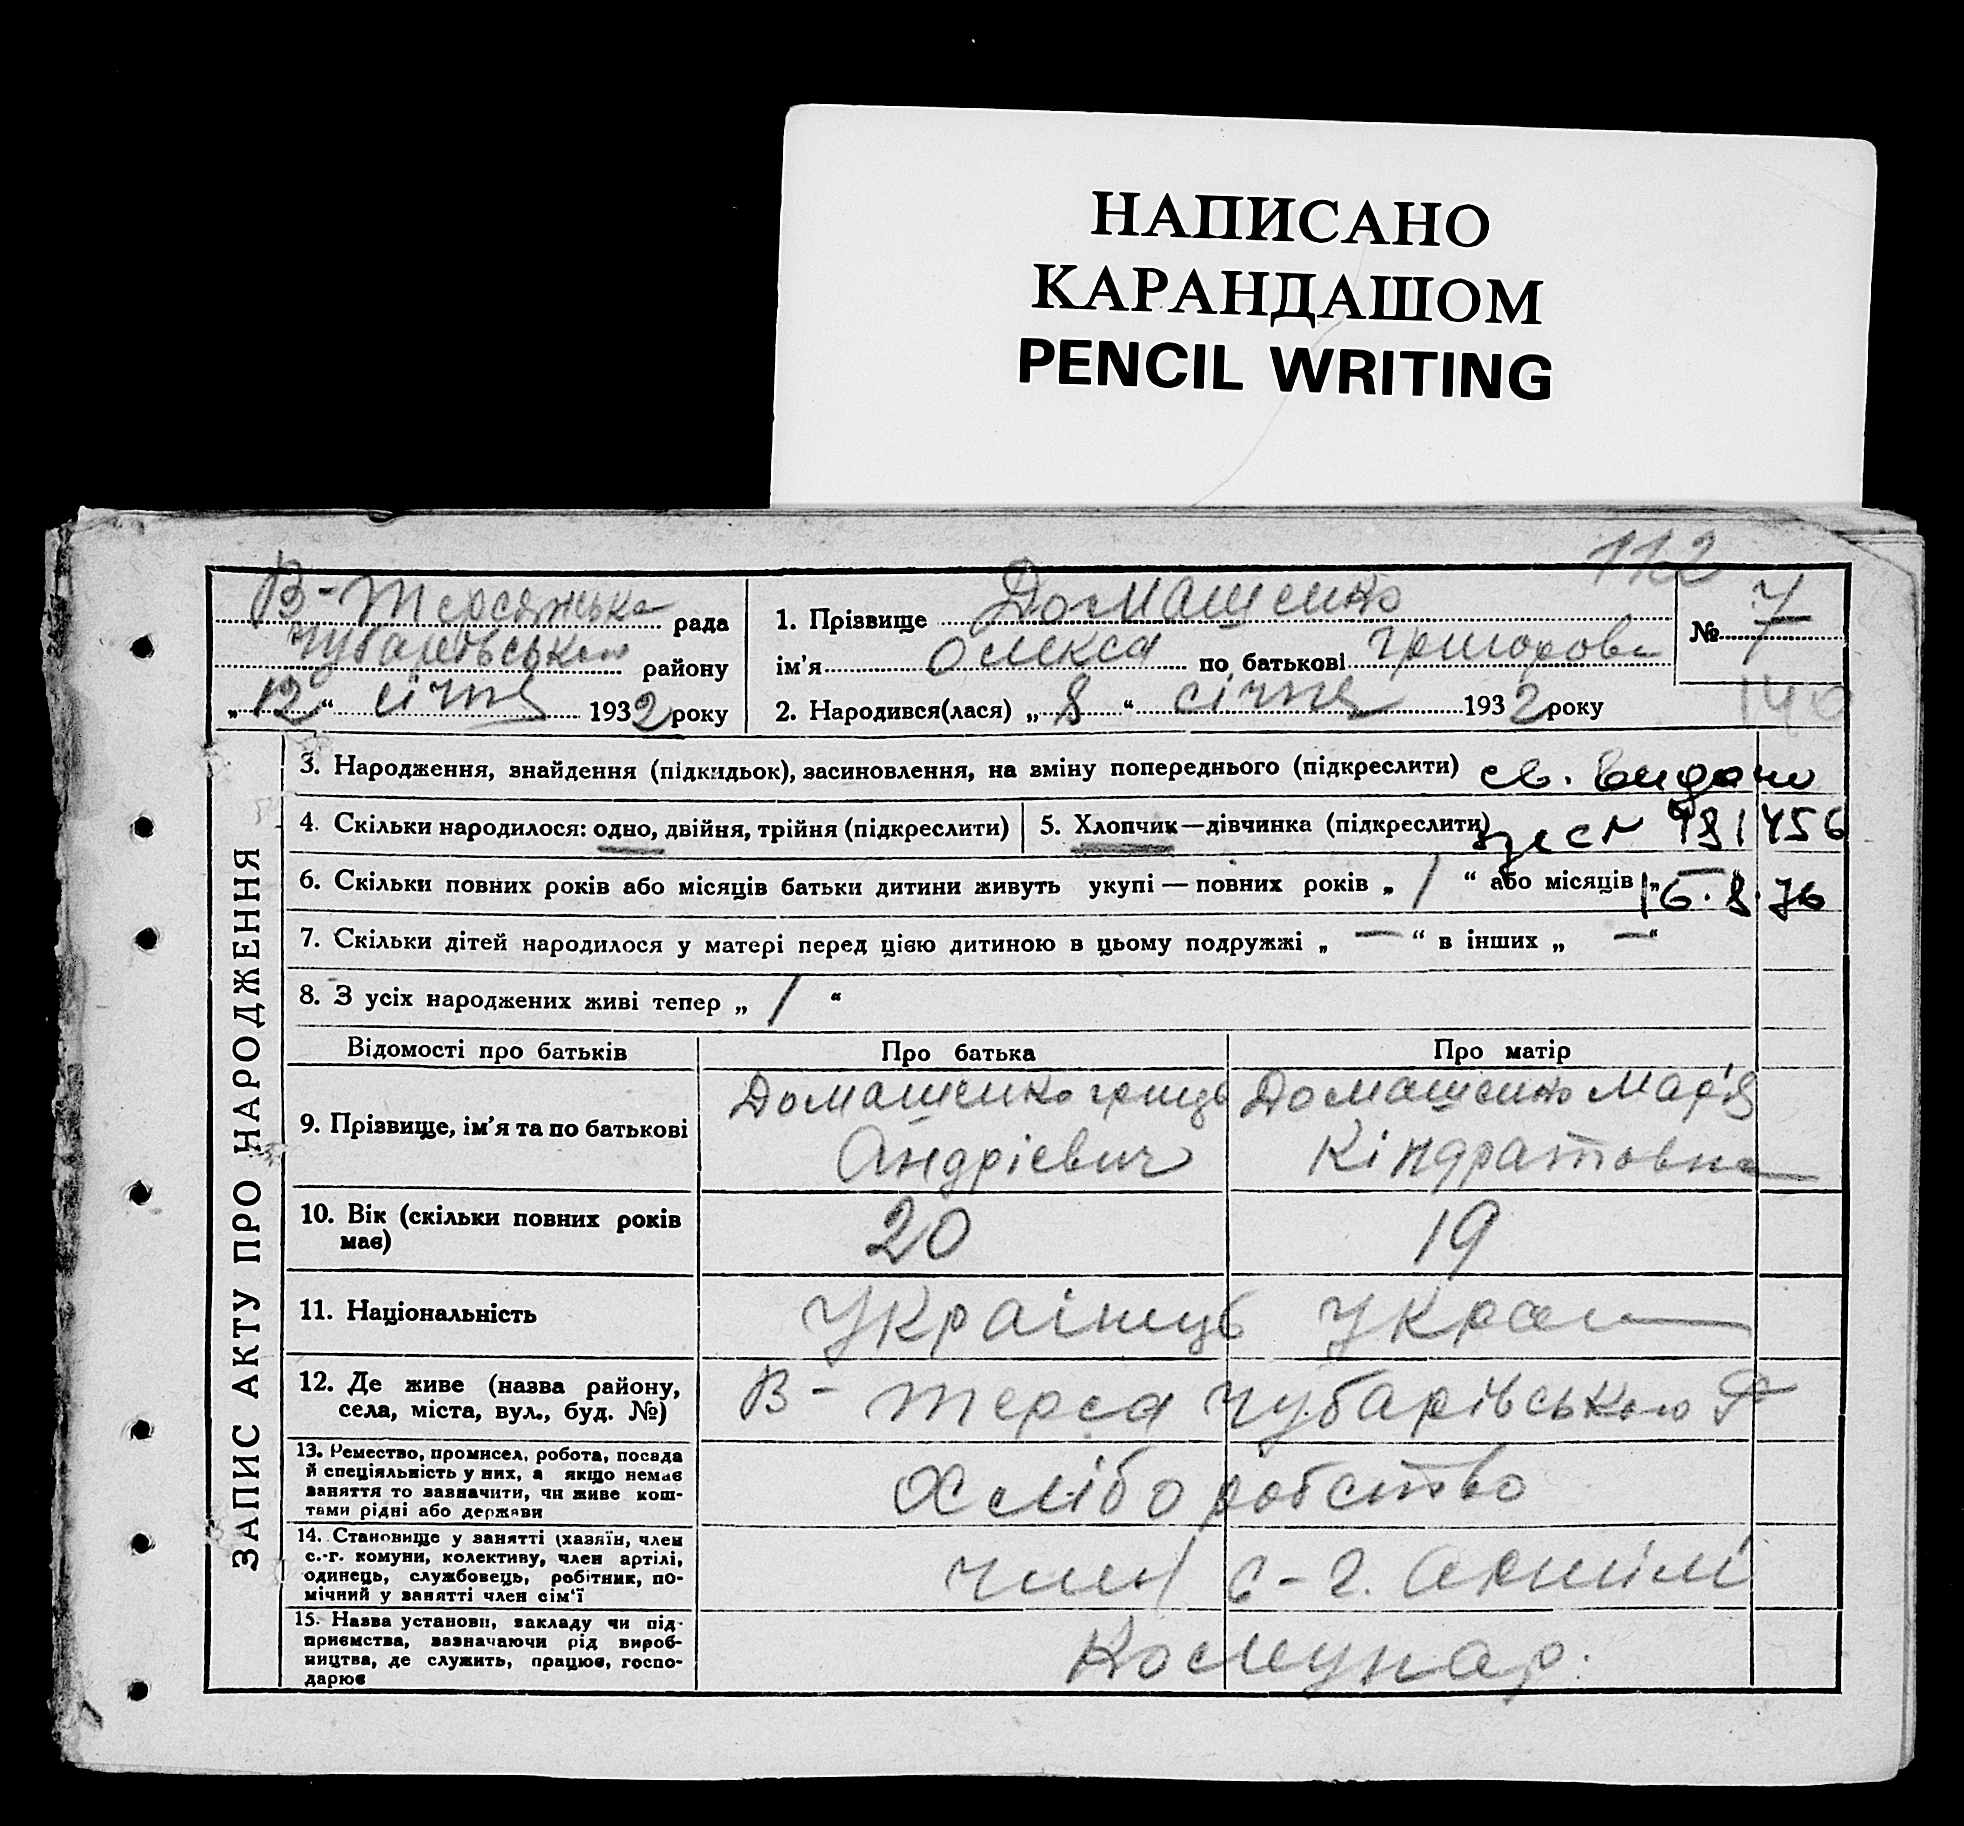 НАПИСАНО
КАРАНДАШОМ
PENCIL WRITING
112
В-Терсянська рада
Чубарівського району
„12“ січня 1932 року
1. Прізвище Домашенко
ім’я Олекса по батькові Григоров
2. Народився(лася) „8“ січня 1932 року
№ 7
140
ЗАПИС АКТУ ПРО НАРОДЖЕННЯ
3. Народження, знайдення (підкидьок), засиновлення, на зміну попереднього (підкреслити) св. видано
4. Скільки народилося: одно, двійня, трійня (підкреслити)
5. Хлопчик—дівчинка (підкреслити) 481456
6. Скільки повних років або місяців батьки дитини живуть укупі — повних років „ 1 “ або місяців „ — 16.8.76
7. Скільки дітей народилося у матері перед цією дитиною в цьому подружжі „ — “ в інших „ — “
8. З усіх народжених живі тепер „ 1 “
Відомості про батьків
Про батька
Про матір
9. Прізвище, ім’я та по батькові
Домашенко Гриць
Андрієвич
Домашенко Мар'я
Кіндратовна
10. Вік (скільки повних років
має)
20
19
11. Національність
Українець
Укра
12. Де живе (назва району,
села, міста, вул., буд. №)
В-Терса Чубарівського Р
13. Ремество, промисел, робота, посада
й спеціяльність у них, а якщо немає
заняття то зазначити, чи живе кош-
тами рідні або держави
Хліборобство
14. Становище у занятті (хазяїн, член
с.-г. комуни, колективу, член артілі,
одинець, службовець, робітник, по-
мічний у занятті член сім‘ї
член с-г. артілі
15. Назва установи, закладу чи під-
приємства, зазначаючи рід вироб-
ництва, де служить, працює, госпо-
дарює
Комунар.